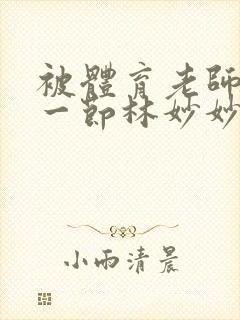 被體育老師
一節林妙妙
小雨清晨